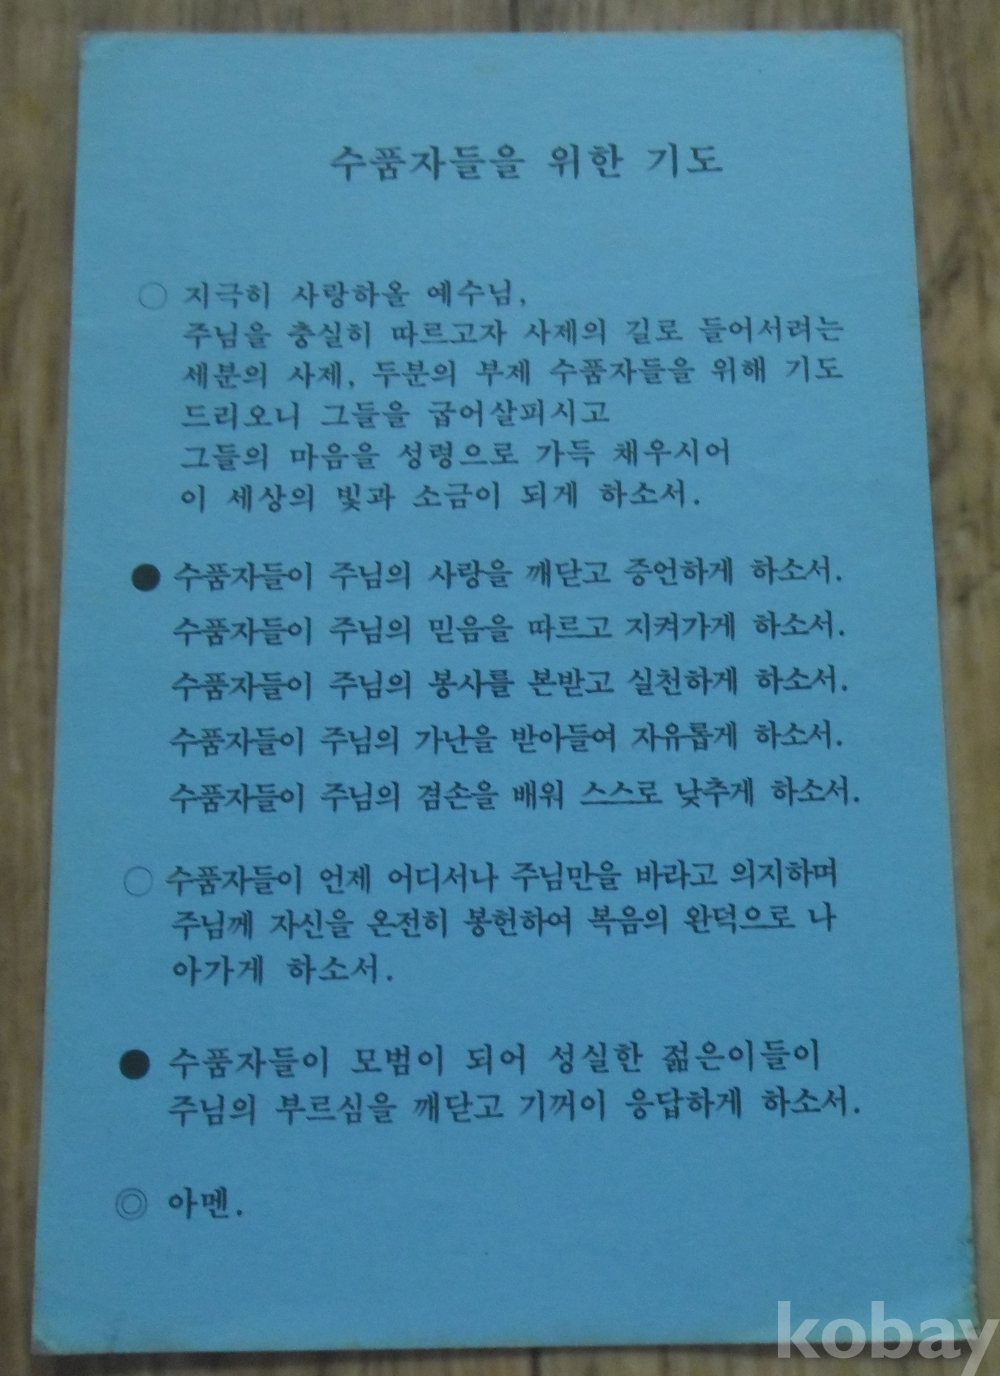 수품자들을 위한 기도
○ 지극히 사랑하올 예수님,
주님을 충실히 따르고자 사제의 길로 들어서려는
세분의 사제, 두분의 부제 수품자들을 위해 기도
드리오니 그들을 굽어살피시고
그들의 마음을 성령으로 가득 채우시어
이 세상의 빛과 소금이 되게 하소서.
● 수품자들이 주님의 사랑을 깨닫고 증언하게 하소서.
수품자들이 주님의 믿음을 따르고 지켜가게 하소서.
수품자들이 주님의 봉사를 본받고 실천하게 하소서.
수품자들이 주님의 가난을 받아들여 자유롭게 하소서.
수품자들이 주님의 겸손을 배워 스스로 낮추게 하소서.
○ 수품자들이 언제 어디서나 주님만을 바라고 의지하며
주님께 자신을 온전히 봉헌하여 복음의 완덕으로 나
아가게 하소서.
● 수품자들이 모범이 되어 성실한 젊은이들이
주님의 부르심을 깨닫고 기꺼이 응답하게 하소서.
◎ 아멘.
kobay